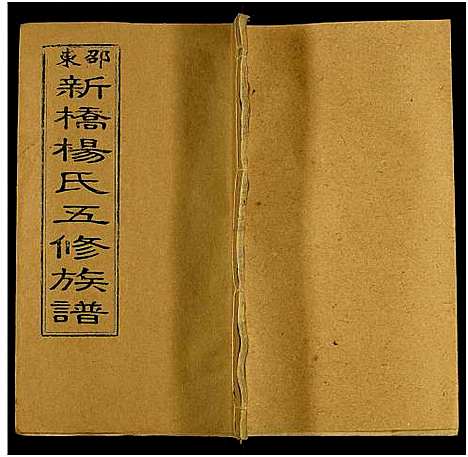 邵東
新橋楊氏五修族譜